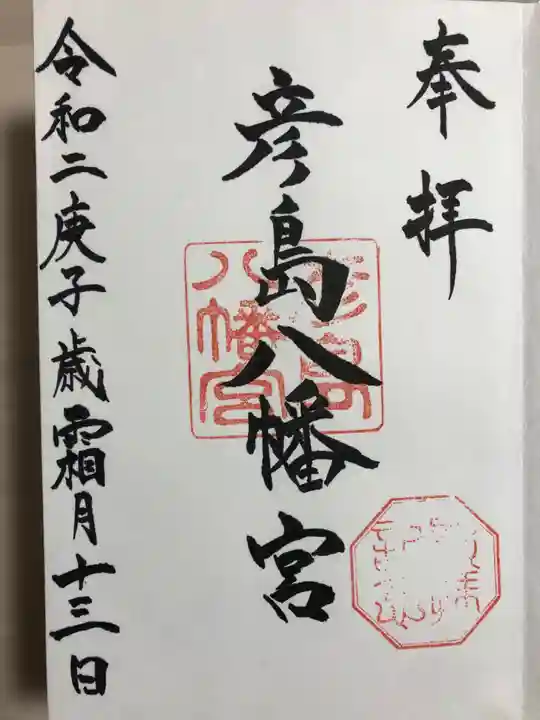 奉拝
彦島八幡宮
彦島八幡宮
令和二庚子歳霜月十三日